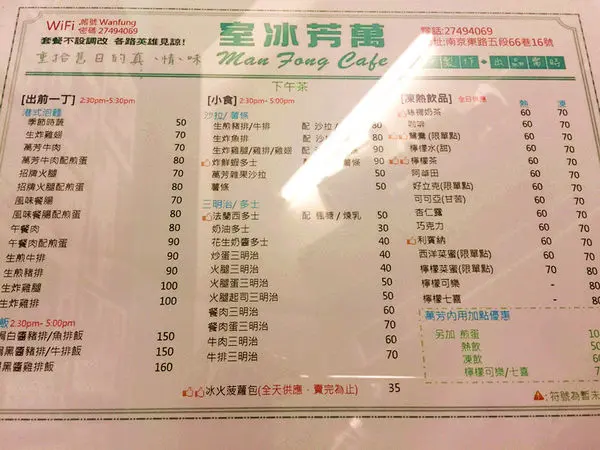 WiFi 帳號 Wanfung
密碼 27494069
套餐不設調改 各路英雄見諒!
重拾舊日的真、情、味
室冰芳萬
Man Fong Cafe
電話:27494069
地址:南京東路五段66巷16號
下午茶
[出前一丁] 2:30pm-5:30pm
港式泡麵
季節時蔬 50
生炸雞翅 70
萬芳牛肉 70
萬芳牛肉配煎蛋 80
招牌火腿 70
招牌火腿配煎蛋 80
風味餐腸 70
風味餐腸配煎蛋 80
午餐肉 80
午餐肉配煎蛋 90
生煎牛排 90
生煎豬排 90
生炸雞腿 100
生炸雞排 100
飯 2:30pm- 5:00pm
焗白醬豬排/魚排飯 150
焗黑醬豬排/牛排飯 150
焗黑醬雞排飯 160
[小食] 2:30pm- 5:00pm
沙拉/ 薯條
生煎豬排/牛排 配 沙拉/ 80
生炸魚排 配 沙拉/ 80
生炸雞腿/雞排/雞翅 配 沙拉/ 90
炸鮮蝦多士 薯條 90
萬芳雜果沙拉 50
薯條 50
三明治/ 多士
法蘭西多士 配 楓糖 / 煉乳 50
奶油多士 30
花生奶醬多士 40
炒蛋三明治 40
火腿三明治 40
火腿起司三明治 50
餐肉三明治 60
餐肉蛋三明治 70
牛肉三明治 60
牛排三明治 70
冰火菠蘿包(全天供應,賣完為止) 35
[凍熱飲品] 全日供應 熱 凍
絲襪奶茶 60 70
咖啡 60 70
鴛鴦(限單點) 60 70
檸檬水(甜) 60 70
檸檬茶 60 70
阿華田 60 70
好立克(限單點) 60 70
可可亞(甘苦) 60 70
杏仁露 60 70
巧克力 60 70
利賓納 60 70
西洋菜蜜(限單點) 60 70
檸檬菜蜜(限單點) 70 80
檸檬可樂 - 80
檸檬七喜 - 80
萬芳內用加點優惠
另加 煎蛋
熱飲
凍飲
檸檬可樂/七喜
:符號為暫未